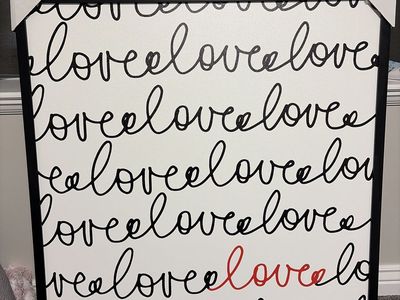 love love love
love love love
love love love
love love love
love love love
love love love